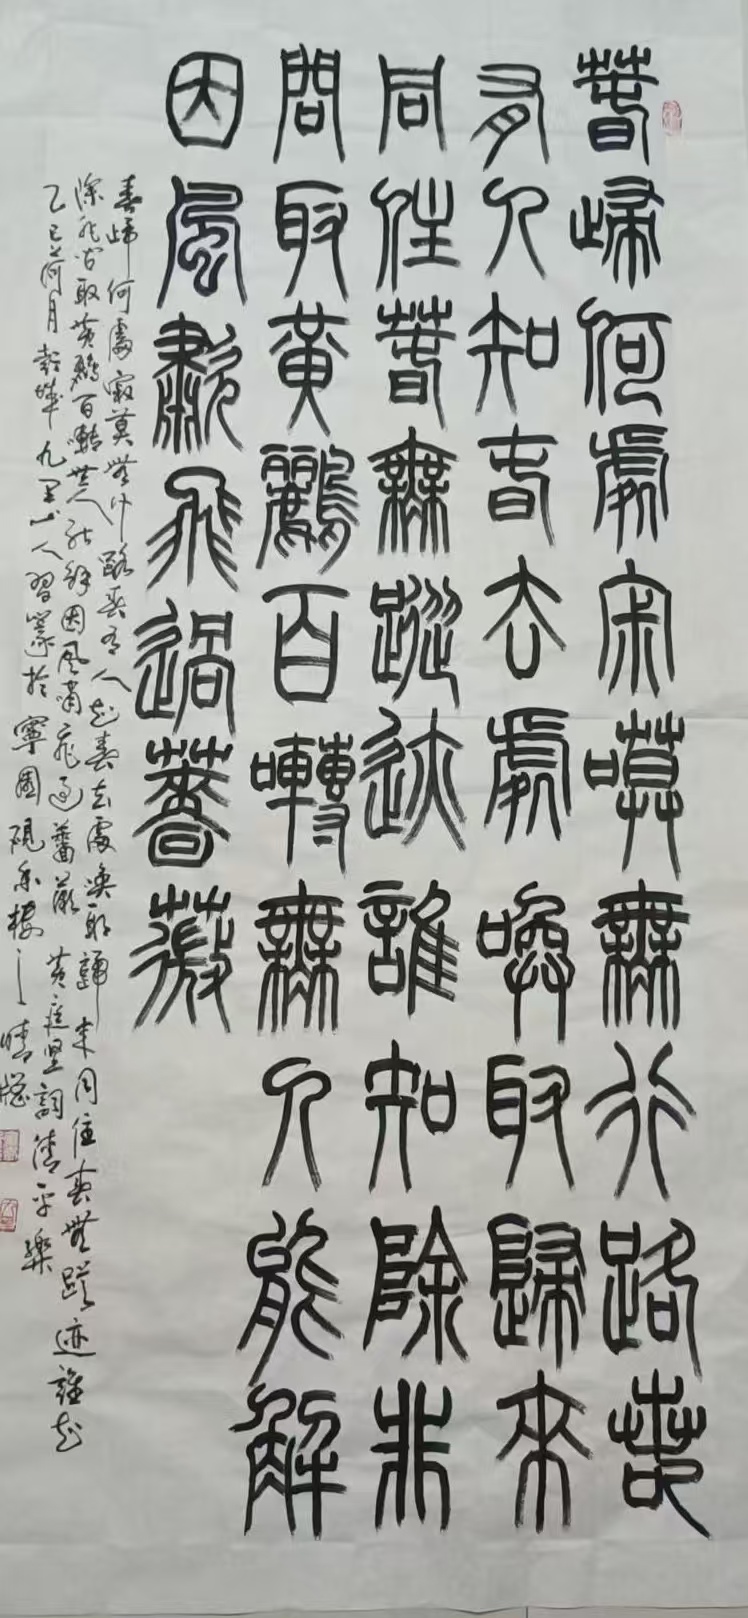 春歸何處寂嗼無行路若
有人知春去處喚取歸來
同住春無蹤迹誰知除非
問取黃鸝百囀無人能解
因風歗飛過薔薇
春歸何處寂莫無行路若有人知春去處喚取歸來同住春無蹤迹誰知
除非問取黃鸝百囀無人能解因風嘯飛過薔薇 黃庭堅詞清平樂
乙巳荷月穀城九里山人習篆於寧國硯香樓之晴窗